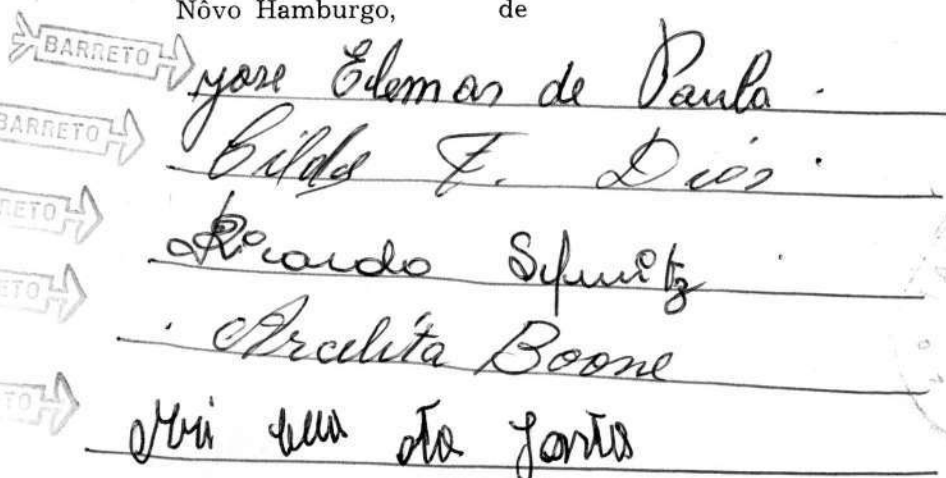 Nôvo Hamburgo, de
BARRETO
José Edemar de Paula
BARRETO
Gilda F. Dios
RETO
Ricardo Schmitz
ETO
Arcelita Boone
TO